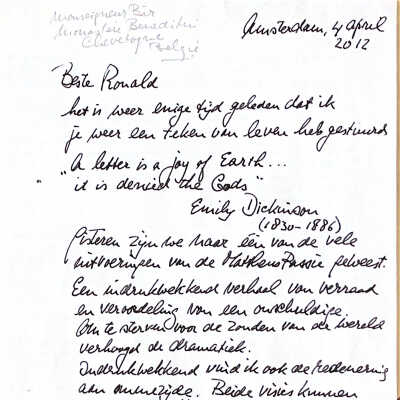 Monseigneur Bär
Monastère Benedictin
Chevetogne
België
Amsterdam, 4 april
2012
Beste Ronald
het is weer enige tijd geleden dat ik
je weer een teken van leven heb gestuurd
"A letter is a joy of Earth...
it is denied the Gods"
Emily Dickinson
(1830-1886)
Gisteren zijn we naar één van de vele
uitvoeringen van de MattheusPassie geweest.
Een indrukwekkend verhaal van verraad
en veroordeling van een onschuldige.
Om te sterven voor de zonden van de wereld
verhoogt de dramatiek.
Indrukwekkend vind ik ook de redenering
aan onze zijde. Beide visies kunnen